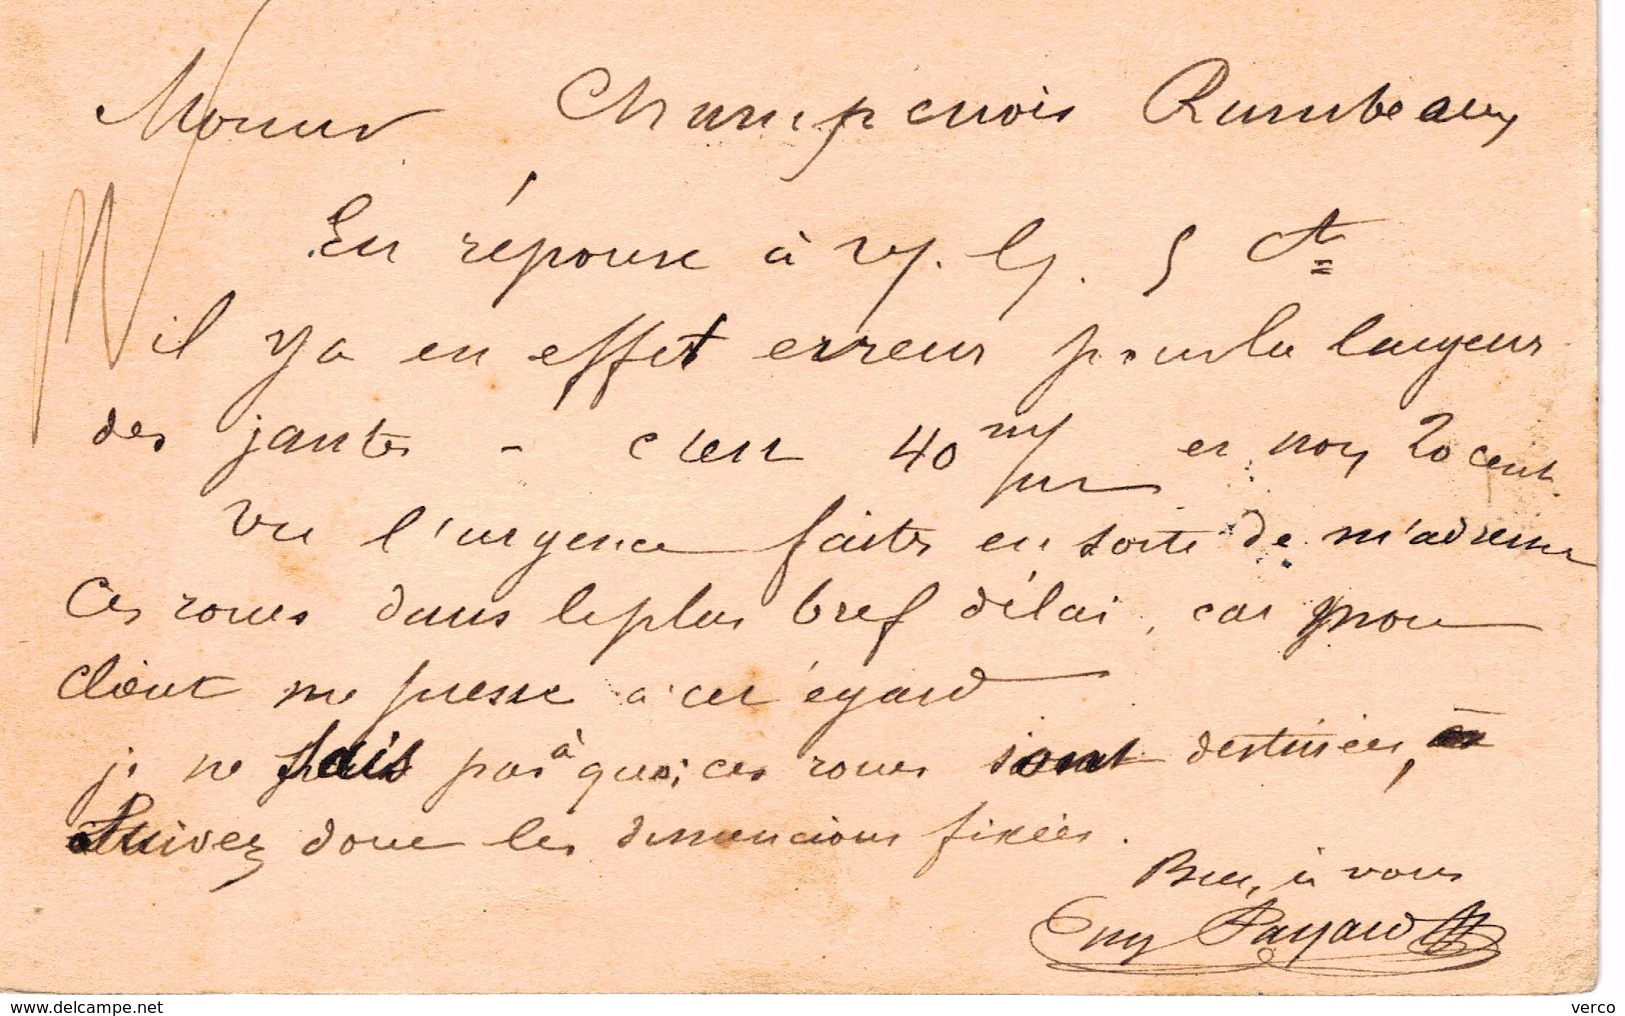 Monsieur Champenois Rambeaux
En réponse à v/. L/. 5 Ct
il y a en effet erreur pour la largeur
des jantes - c'est 40 m/m et non 20 cent.
Vu l'urgence faites en sorte de m'adresser
Ces roues dans le plus bref délai, car mon
client me presse à cet égard
je ne sais pas à quoi ces roues sont destinées,
Suivez donc les dimensions fixées.
Bien à vous
Eug Payard
www.delcampe.net
verco